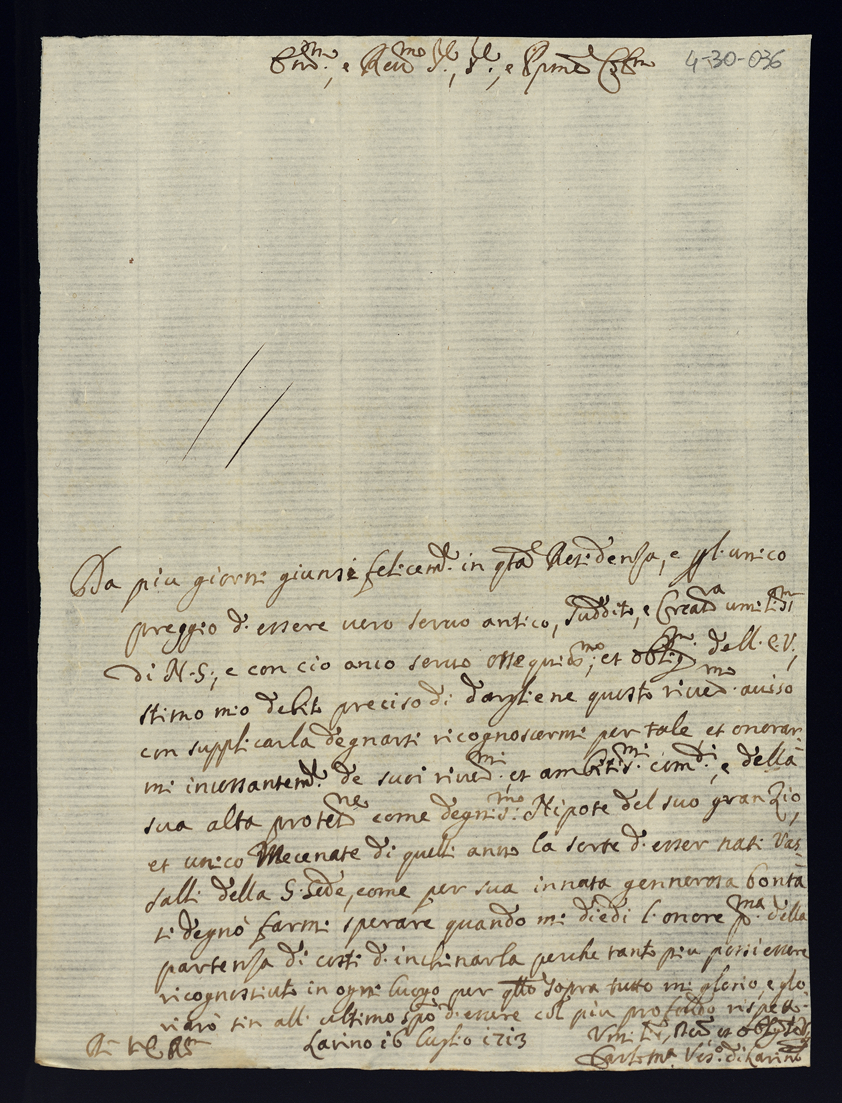 Em.mo, e Rev.mo S.re, S.re, e P.ne Col.mo
4-30-036
Da piu giorni giunsi felicem.te in q.ta Residenza, e p l'unico
preggio d'essere vero servo antico, suddito, e Creat.ra umilis.ma
di N. S.; e con cio anco servo ossequios.mo, et oblig.mo dell'E. V.,
stimo mio debito preciso di dargliene questo river.mo aviso
con supplicarla degnarsi ricognoscermi per tale et onorar-
mi incessantem.te de suoi river.mi, et ambitis.mi com.di, e della
sua alta protet.ne come degnis.mo Nipote del suo gran Zio,
et unico Mecenate di quelli anno la sorte d'esser nati Vas-
salli della S. Sede, come per sua innata gennerosa bontà
si degnò farmi sperare quando mi diedi l'onore p.ma della
partenza di costi d'inchinarla perche tanto piu possi essere
ricognosciuto in ogni luogo per q.llo sopra tutto mi glorio, e glo-
riarò sin all'ultimo spo d'essere col piu profondo rispetto
Larino 16 Luglio 1713
Carlo M.a Ves.o di Larino